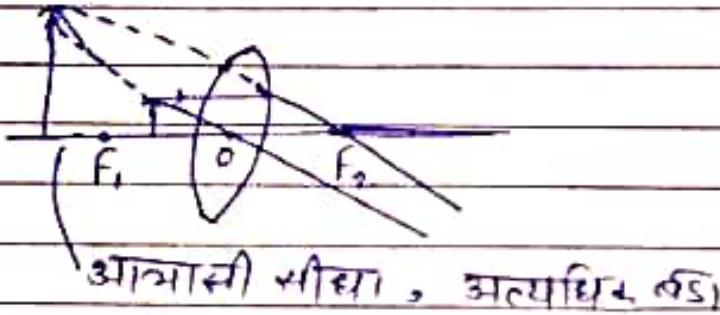 F₁ O F₂
आभासी सीधा, अत्यधिक बड़ा